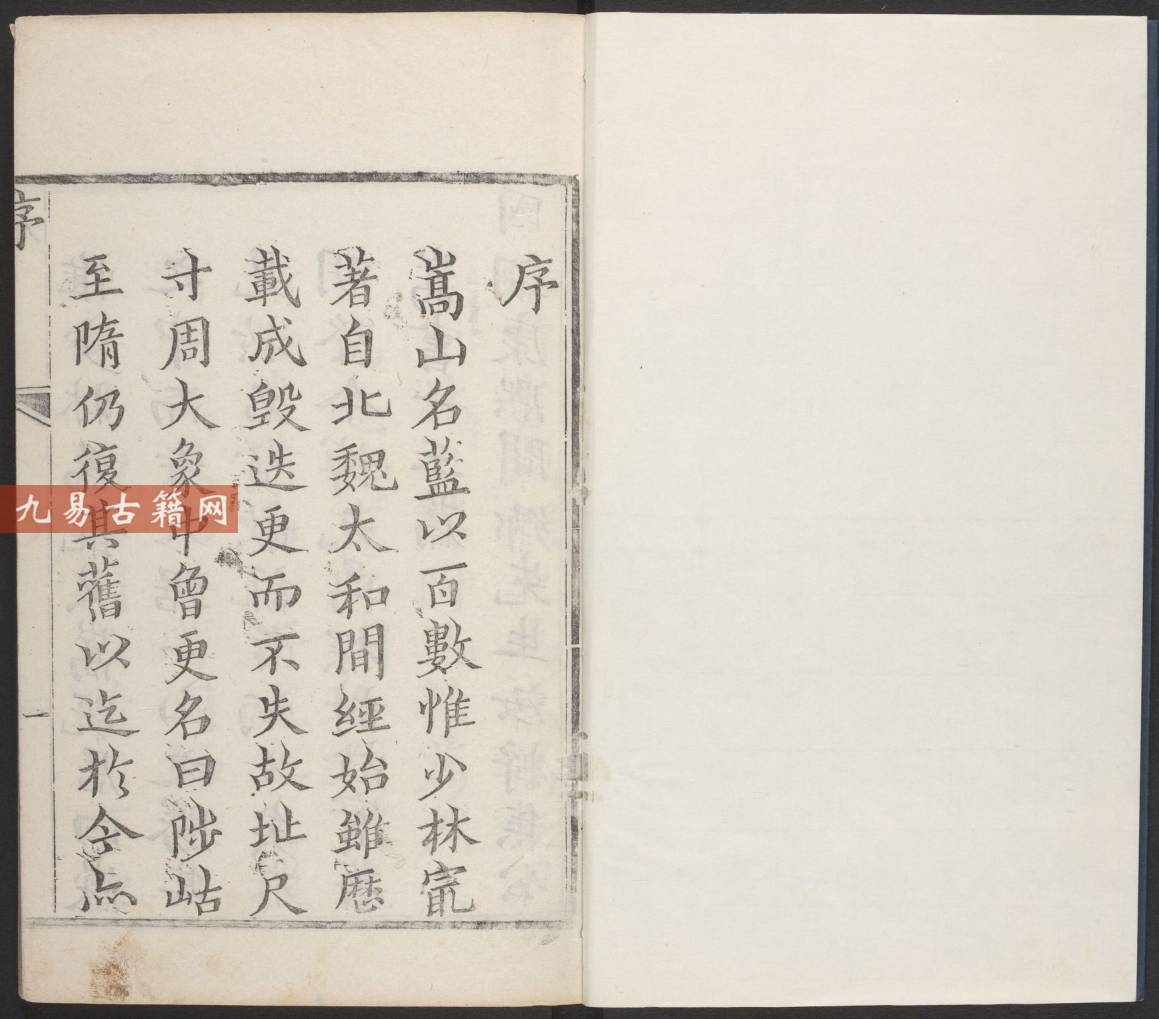 序
嵩山名藍以百數惟少林㝡
著自北魏太和間經始雖歷
載成毀迭更而不失故址尺
寸周大象中曾更名曰陟岵
至隋仍復其舊以迄於今亦
序
一
九易古籍网